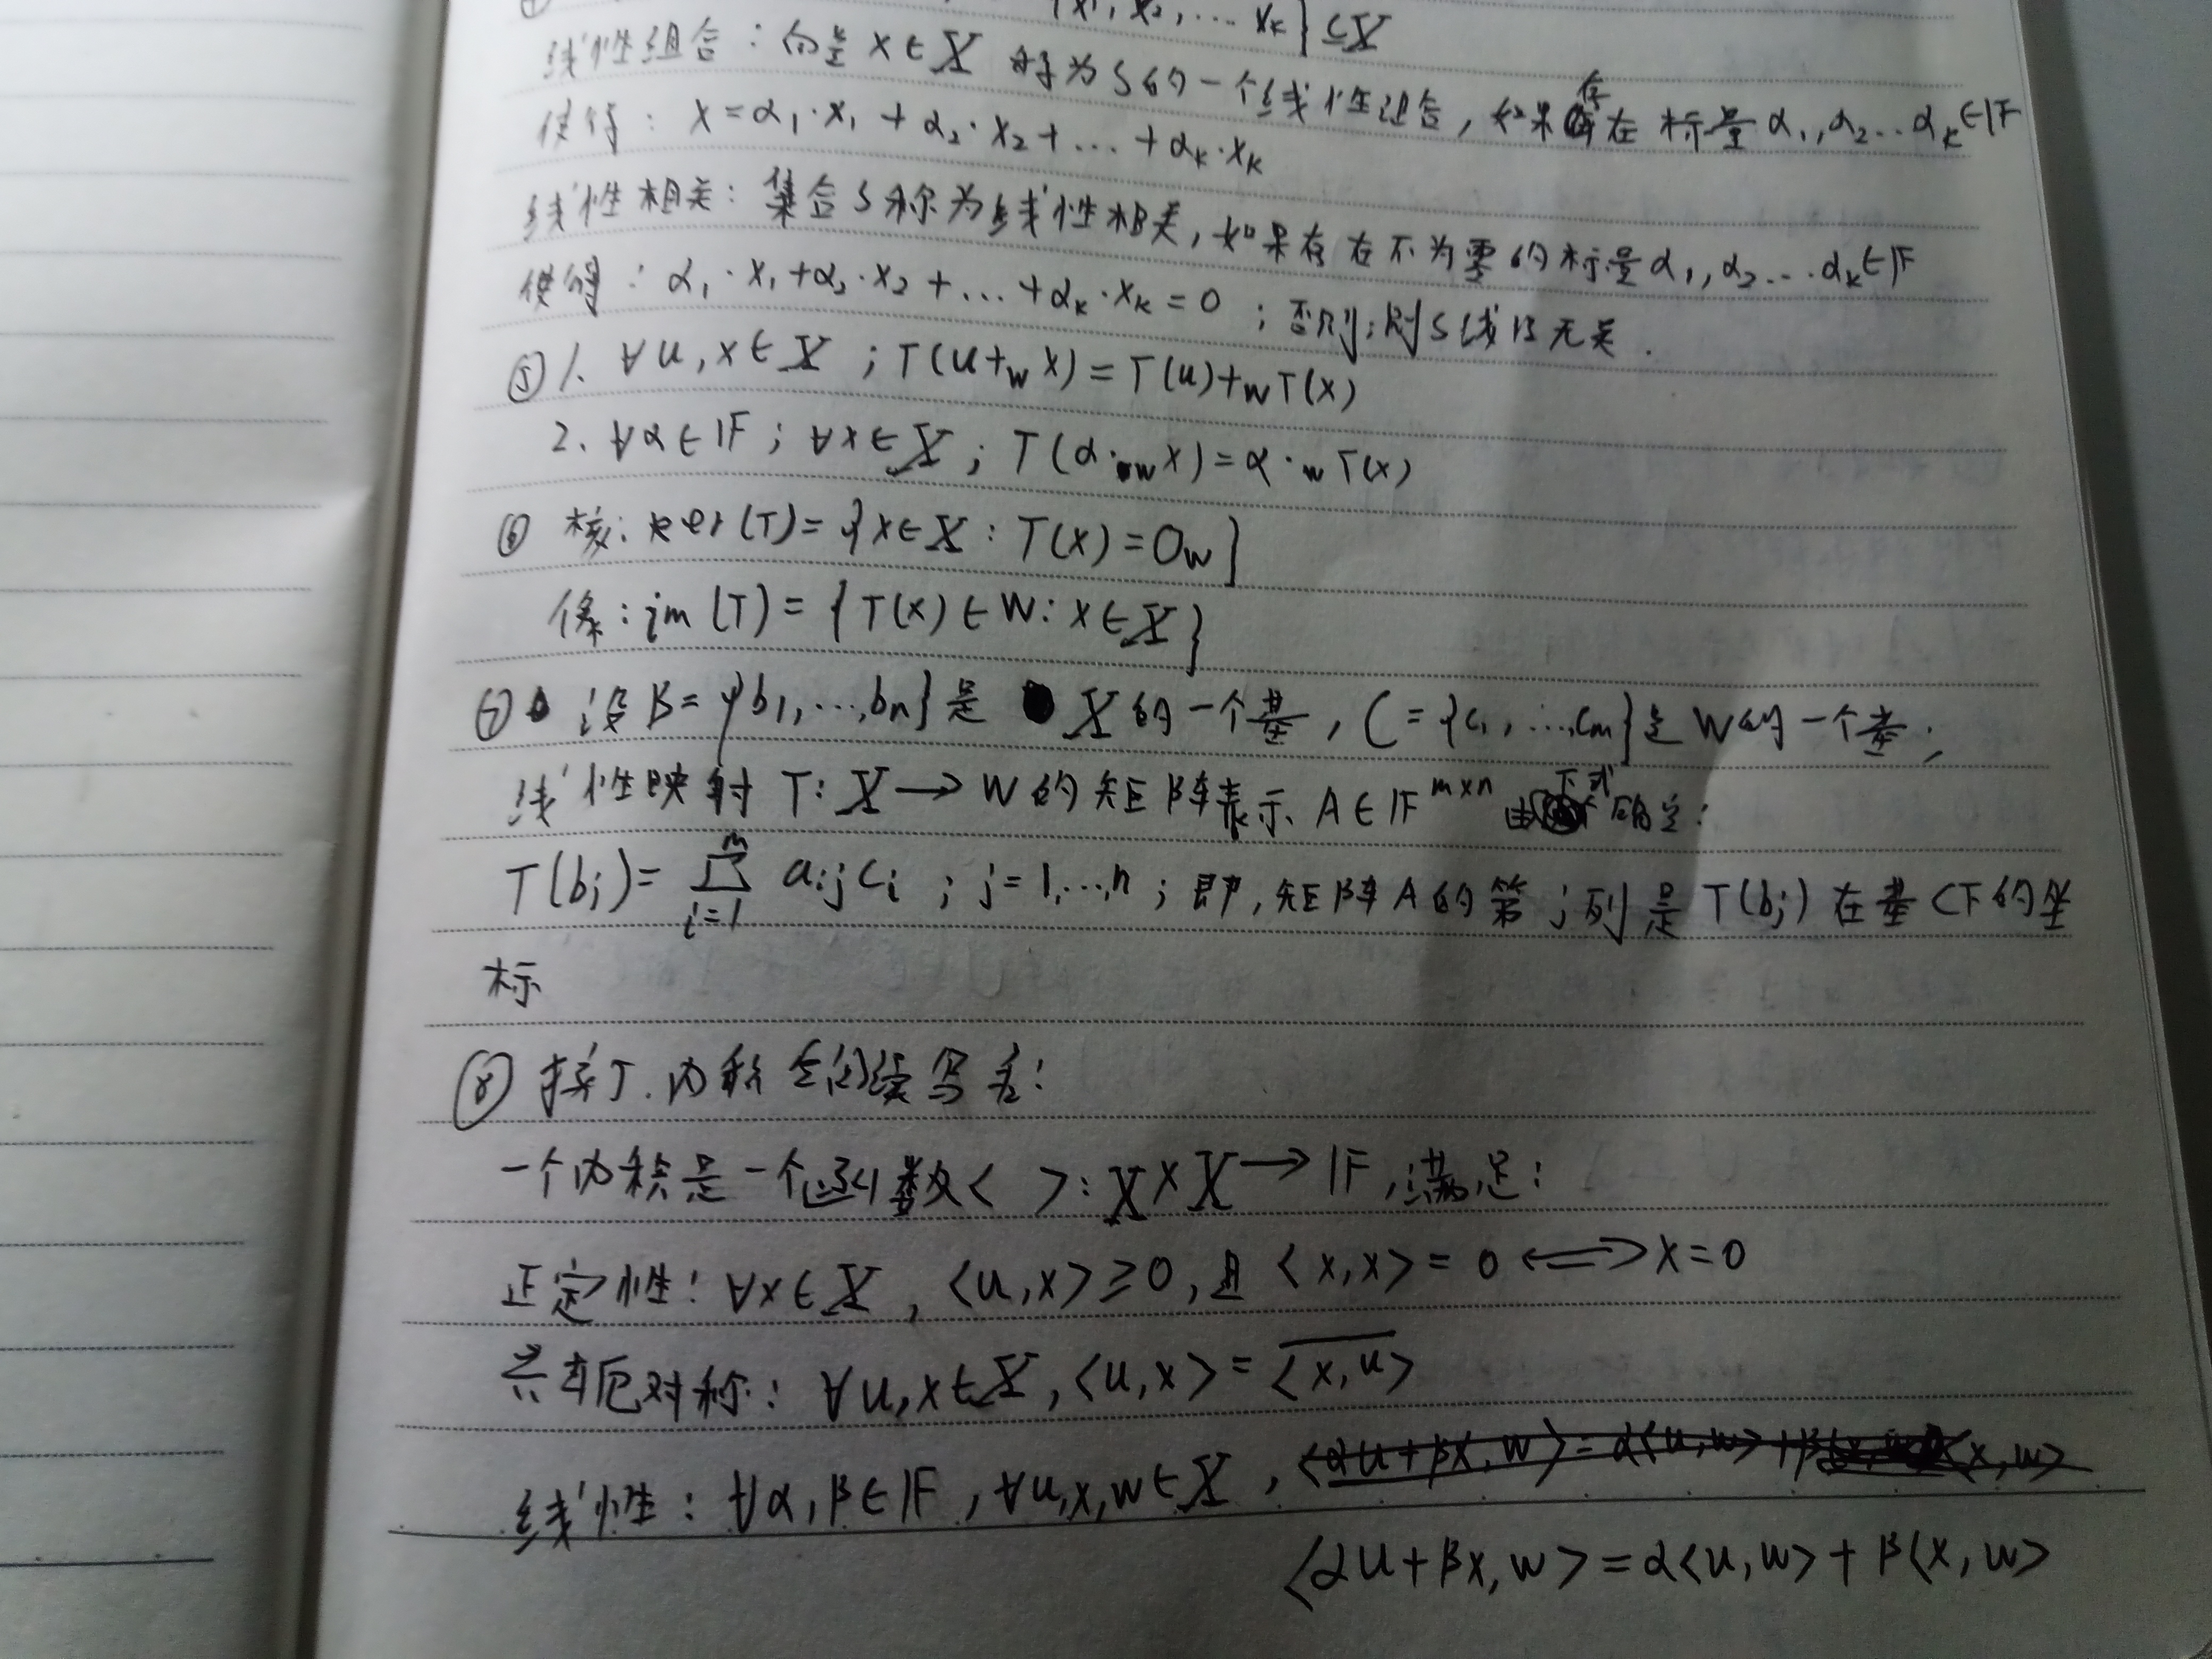 {x₁, x₂, ... xₖ} ⊆ X
线性组合：向量 x∈X 称为S的一个线性组合，如果存在标量 α₁, α₂... αₖ∈𝔽
使得：x=α₁·x₁+α₂·x₂+...+αₖ·xₖ
线性相关：集合S称为线性相关，如果存在不为零的标量α₁, α₂... αₖ∈𝔽
使得：α₁·x₁+α₂·x₂+...+αₖ·xₖ=0；否则；则S线性无关.
⑤ 1. ∀u,x∈X；T(u+_w x)=T(u)+_w T(x)
2. ∀α∈𝔽；∀x∈X；T(α·_w x)=α·_w T(x)
⑥ 核：ker(T)={x∈X：T(x)=0_w}
像：im(T)={T(x)∈W：x∈X}
⑦ 设B={b₁,...,bₙ}是X的一个基，C={c₁,...,cₘ}是W的一个基；
线性映射 T：X→W的矩阵表示 A∈𝔽^{m×n} 由下式确定：
T(bⱼ)=∑_{i=1}^{m} aᵢⱼcᵢ；j=1,...,n；即，矩阵A的第j列是T(bⱼ)在基C下的坐
标
⑧ 接了.内积空间续写为：
一个内积是一个函数< >：X×X→𝔽,满足：
正定性：∀x∈X，<u,x>≥0，且<x,x>=0⟺x=0
共轭对称：∀u,x∈X，<u,x>=\overline{<x,u>}
线性：∀α,β∈𝔽，∀u,x,w∈X，
<αu+βx,w>=α<u,w>+β<x,w>